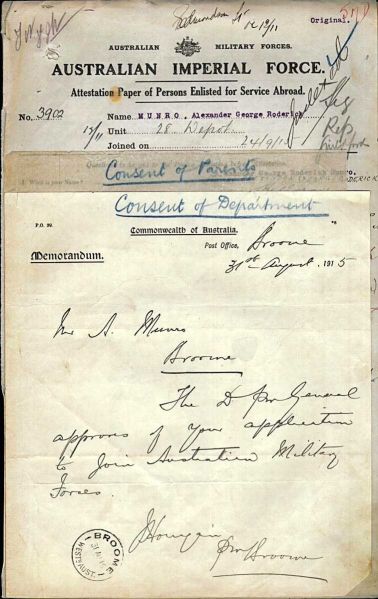 Original.
AUSTRALIAN MILITARY FORCES.
AUSTRALIAN IMPERIAL FORCE.
Attestation Paper of Persons Enlisted for Service Abroad.
No. 3902
Name MUNRO, Alexander George Roderick
Unit 28 Depot.
Joined on 24/9/15
Consent of Parents
George Roderick
Consent of Department
P.O. 20.
Commonwealth of Australia.
Post Office, Broome
Memorandum.
31st August 1915
Mr A. Munro
Broome
The D Pm General
approves of your application
to join Australian Military
Forces.
Pm Broome
BROOME
WEST AUST.